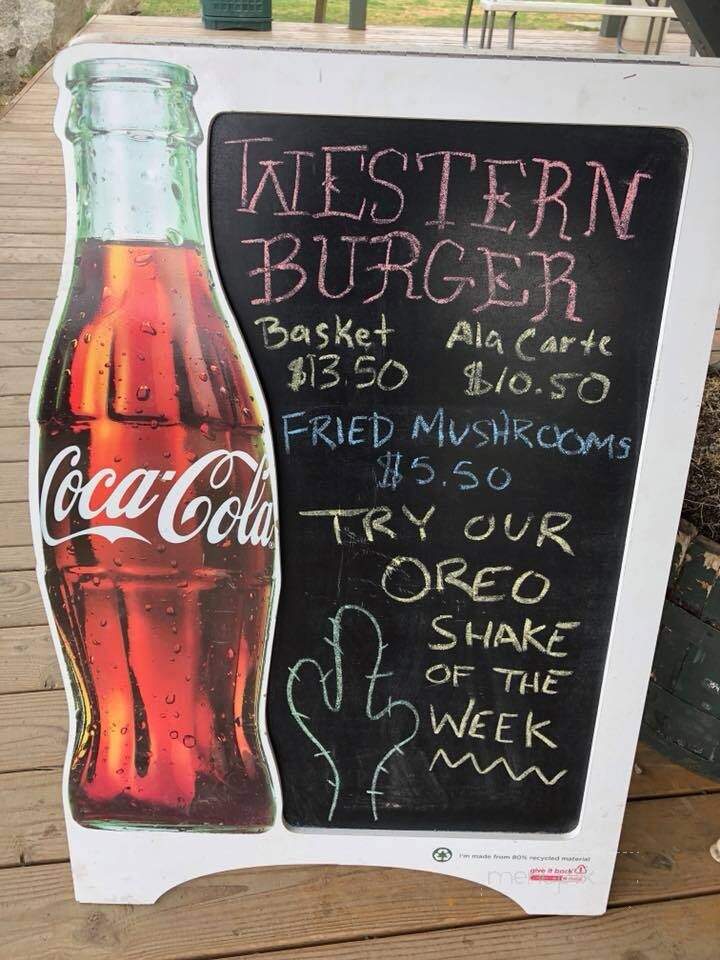 WESTERN
BURGER
Basket Ala Carte
$13.50 $10.50
FRIED MUSHROOMS
$5.50
TRY OUR
OREO
SHAKE
OF THE
WEEK
Coca-Cola
I'm made from 80% recycled material
give it back